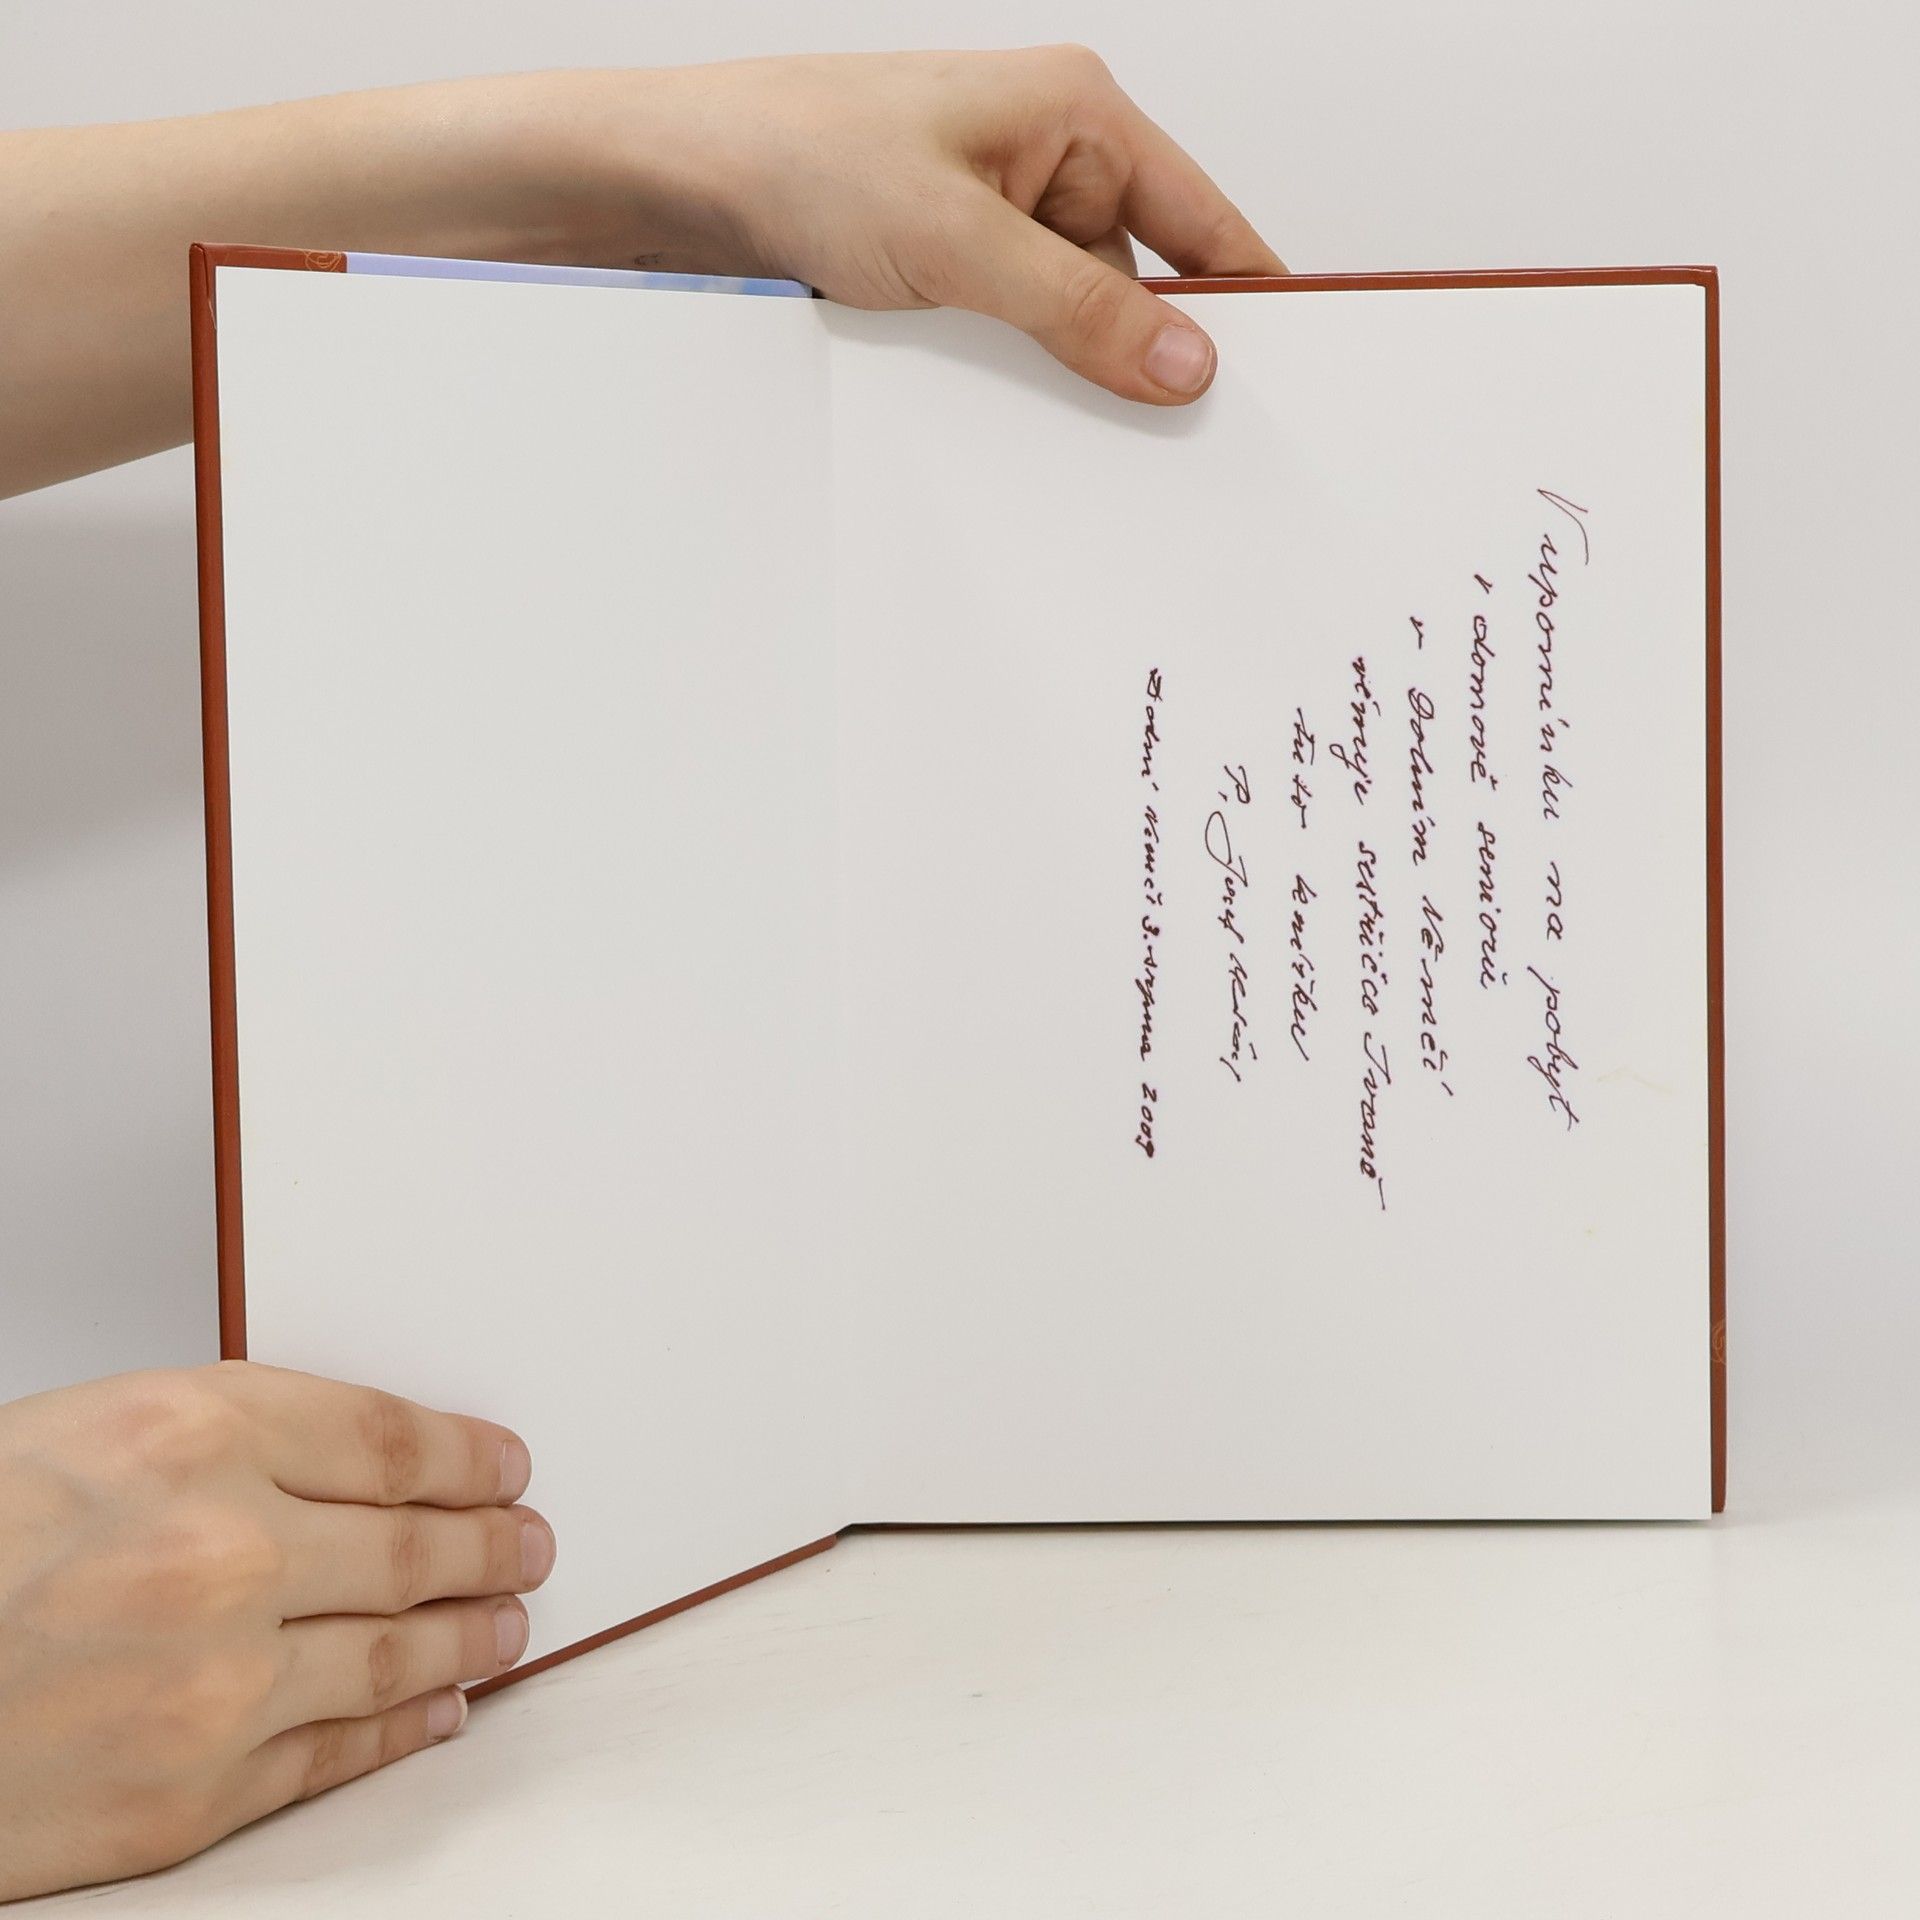 Vzpomínku na pobyt
v domově seniorů
v Dolním Němčí
věnuje sestřičce Ivaně
tuto knížku
P. Josef
Dolní Němčí 3. srpna 2009